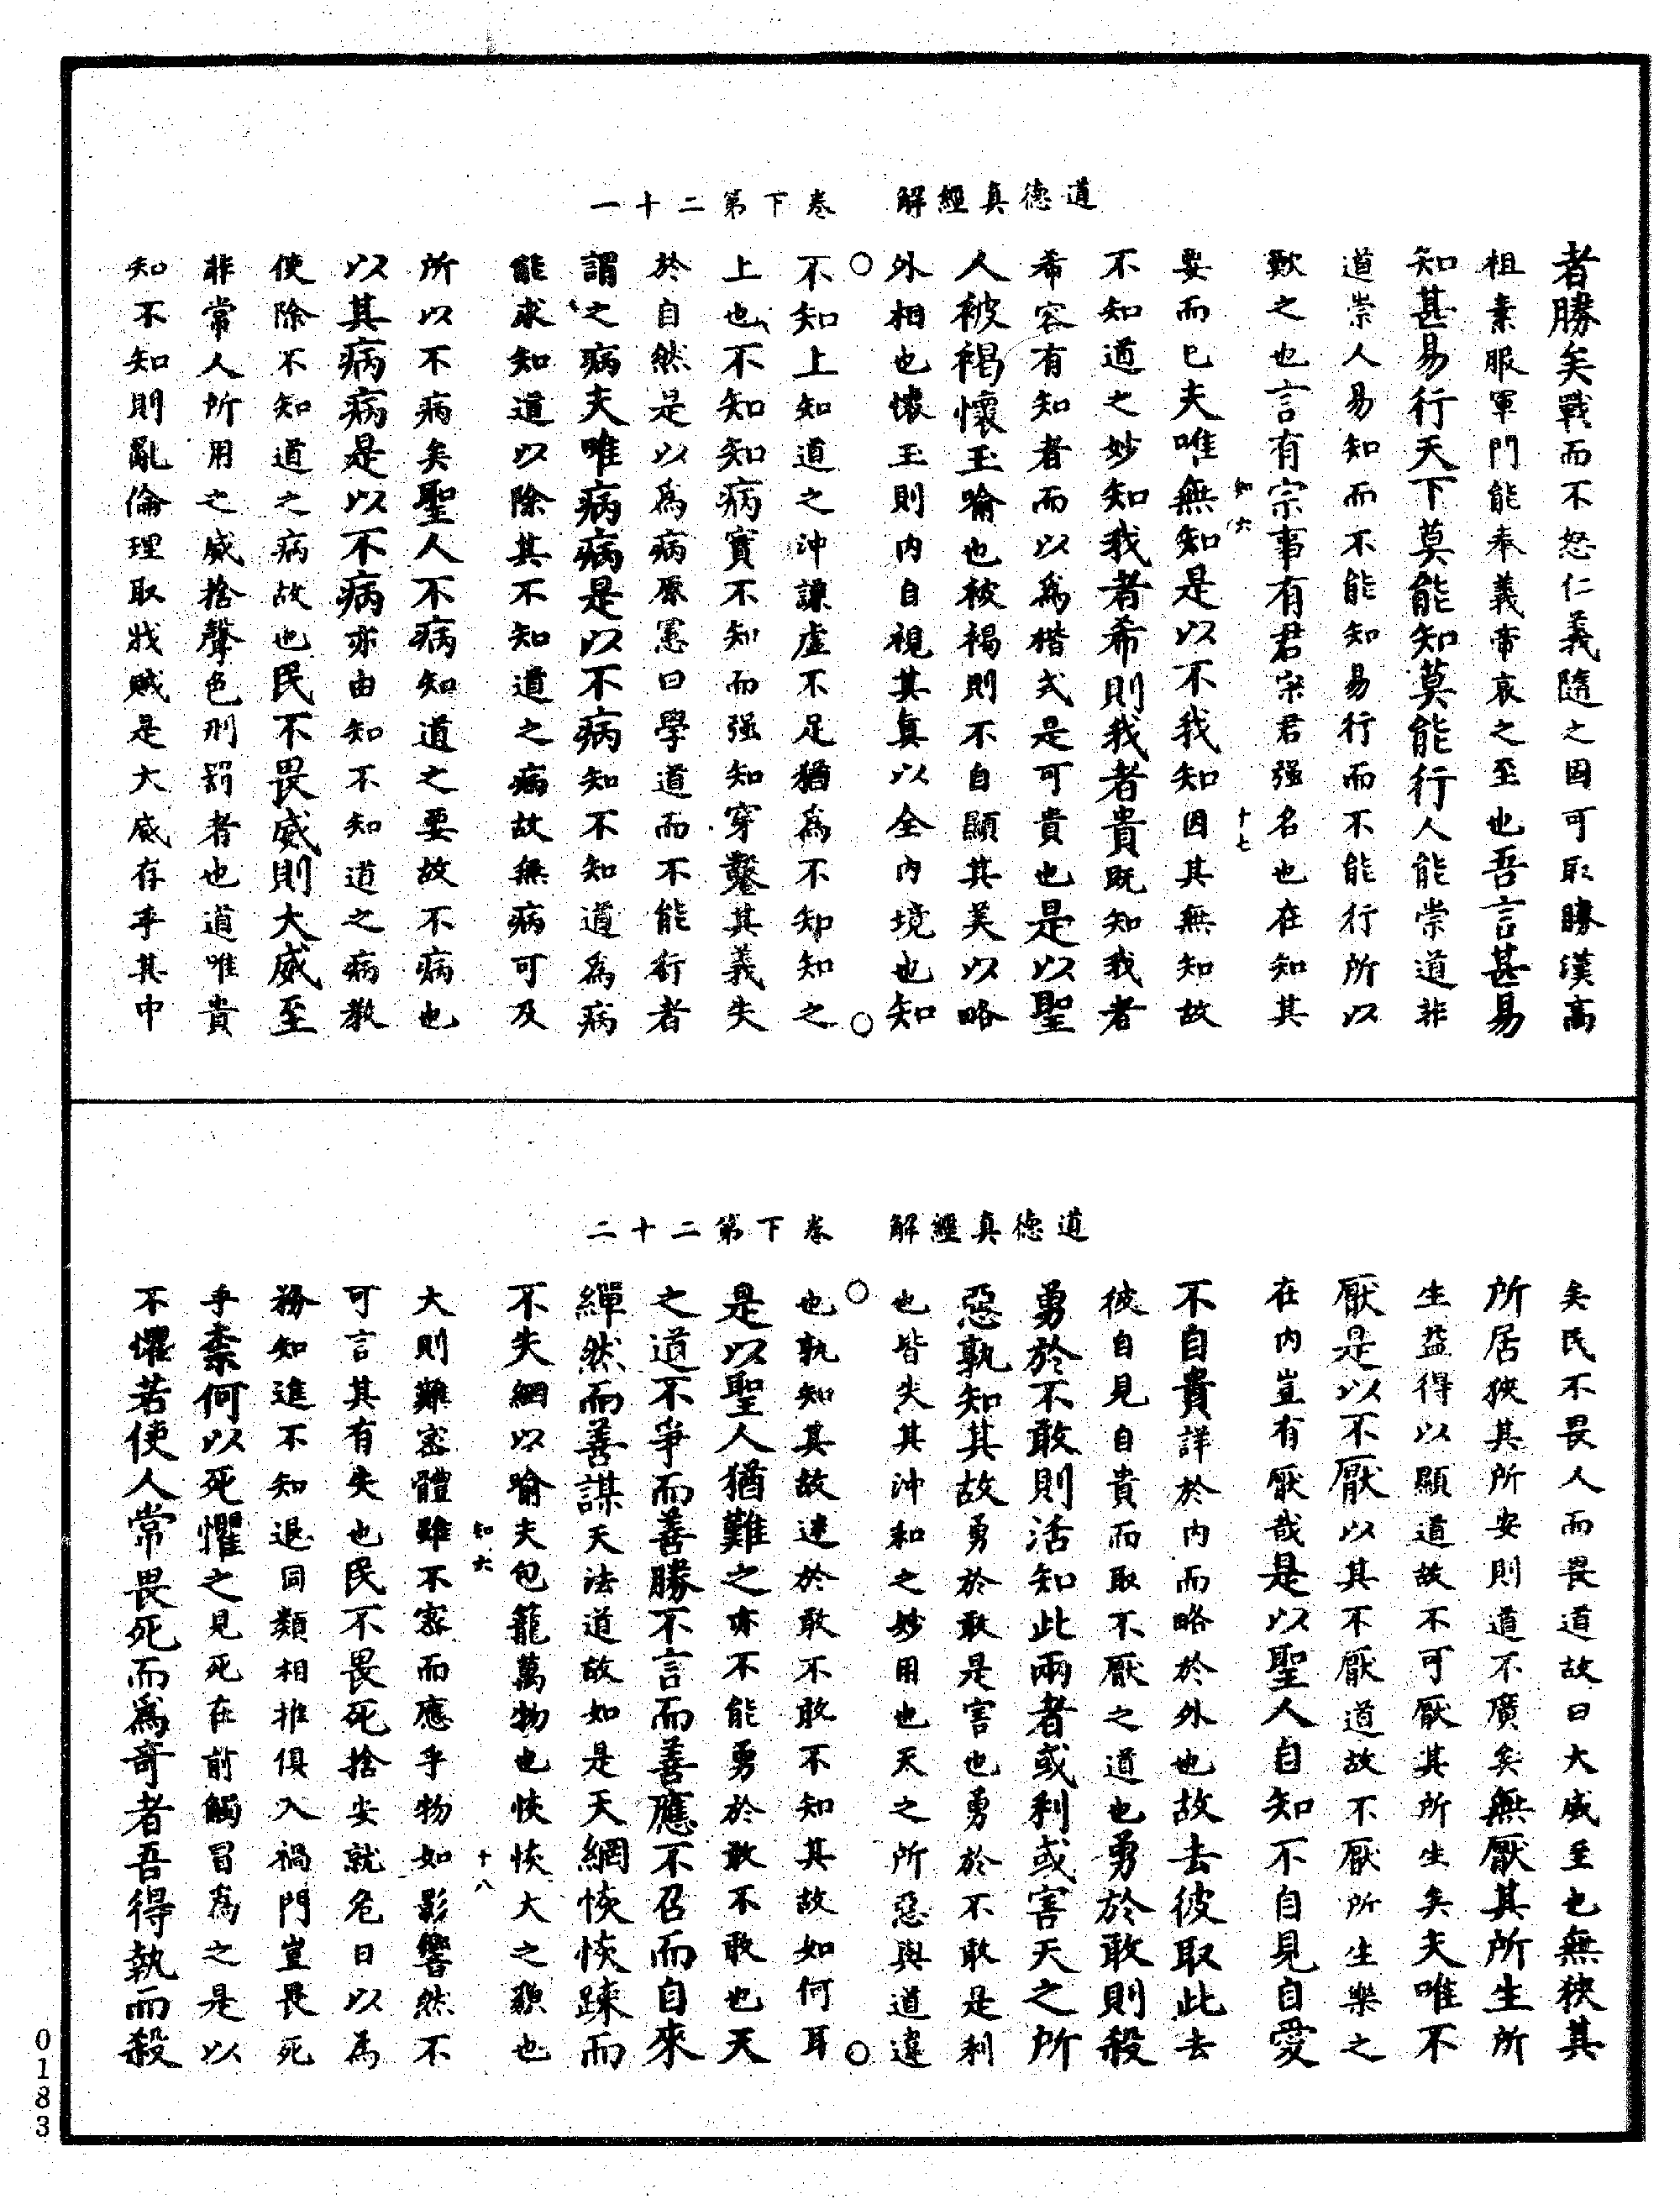 道德真經解　卷下第二十一
者勝矣戰而不怒仁義隨之因可取勝漢高
祖素服軍門能奉義帝哀之至也吾言甚易
知甚易行天下莫能知莫能行人能崇道非
道崇人易知而不能知易行而不能行所以
歎之也言有宗事有君宗君强名也在知其
知六　十七
要而已夫唯無知是以不我知因其無知故
不知道之妙知我者希則我者貴既知我者
希容有知者而以爲楷式是可貴也是以聖
人被褐懷玉喻也被褐則不自顯其美以略
外相也懷玉則内自視其真以全内境也知
不知上知道之沖謙虛不足猶爲不知知之
上也不知知病實不知而强知穿鑿其義失
於自然是以爲病原憲曰學道而不能行者
謂之病夫唯病病是以不病知不知道爲病
能求知道以除其不知道之病故無病可及
所以不病矣聖人不病知道之要故不病也
以其病病是以不病亦由知不知道之病教
使除不知道之病故也民不畏威則大威至
非常人所用之威捨聲色刑罰者也道唯貴
知不知則亂倫理取戕賊是大威存乎其中
道德真經解　卷下第二十二
矣民不畏人而畏道故曰大威至也無狹其
所居狹其所安則道不廣矣無厭其所生所
生益得以顯道故不可厭其所生矣夫唯不
厭是以不厭以其不厭道故不厭所生樂之
在内豈有厭哉是以聖人自知不自見自愛
不自貴詳於内而略於外也故去彼取此去
彼自見自貴而取不厭之道也勇於敢則殺
勇於不敢則活知此兩者或利或害天之所
惡孰知其故勇於敢是害也勇於不敢是利
也皆失其沖和之妙用也天之所惡與道違
也孰知其故逮於敢不敢不知其故如何耳
是以聖人猶難之亦不能勇於敢不敢也天
之道不爭而善勝不言而善應不召而自來
繟然而善謀天法道故如是天網恢恢踈而
不失網以喻夫包籠萬物也恢恢大之貌也
知六　十八
大則難密體雖不密而應乎物如影響然不
可言其有失也民不畏死捨安就危日以為
務知進不知退同類相推俱入禍門豈畏死
乎柰何以死懼之見死在前觸冒爲之是以
不懼若使人常畏死而爲奇者吾得執而殺
0183